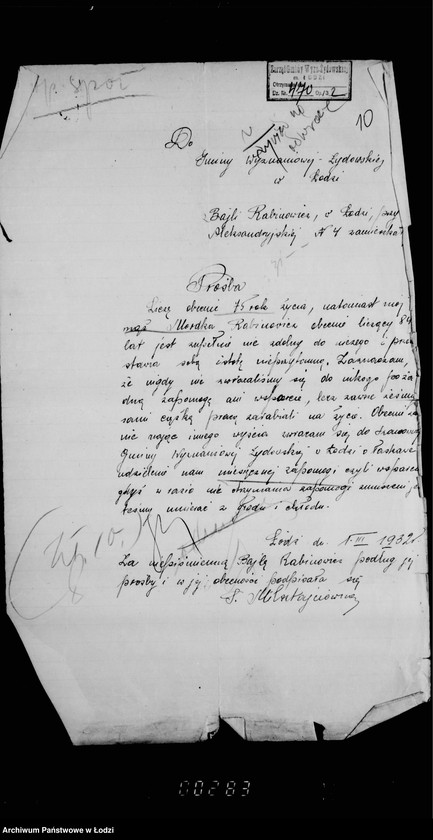 Zarząd Gminy Wyzn. Żydowskiej
w Łodzi
Otrzymano
Dz. Nr. 770 2
10
Do
Gminy Wyznaniowej-Żydowskiej
w Łodzi
Bajli Rabinowicz, w Łodzi, przy
Aleksandryjskiej N 4 zamieszk
Prośba
Liczę obecnie 75 rok życia, natomiast mój
mąż Mordka Rabinowicz obecnie liczący 84
lat jest zupełnie nie zdolny do niczego i prze
stawia sobą istotę nieprzytomną. Zaznaczam
że nigdy nie zwracaliśmy się do nikogo po ża
dną zapomogę ani wsparcie, lecz zawsze żeśmy
sami ciężką pracą zarabiali na życie. Obecnie
nie mając innego wyjścia zwracam się do Szanownej
Gminy Wyznaniowej Żydowskiej w Łodzi o łaskawe
udzielenie nam miesięcznej zapomogi czyli wsparcia
gdyż w razie nie otrzymania zapomogi zmuszeni je
steśmy umierać z głodu i chłodu.
Łódź dn. 1. III 1932
Za niepiśmienną Bajlę Rabinowicz podług jej
prośby i w jej obecności podpisała się
00283
Archiwum Państwowe w Łodzi